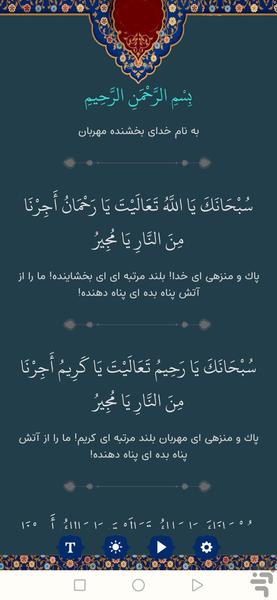 بِسْمِ الرَّحْمَنِ الرَّحِيمِ
به نام خدای بخشنده مهربان
سُبْحَانَكَ يَا اللَّهُ تَعَالَيْتَ يَا رَحْمَانُ أَجِرْنَا
مِنَ النَّارِ يَا مُجِيرُ
پاك و منزهی ای خدا! بلند مرتبه ای ای بخشاینده! ما را از
آتش پناه بده ای پناه دهنده!
سُبْحَانَكَ يَا رَحِيمُ تَعَالَيْتَ يَا كَرِيمُ أَجِرْنَا
مِنَ النَّارِ يَا مُجِيرُ
پاك و منزهی ای مهربان بلند مرتبه ای ای کریم! ما را از آتش
پناه بده ای پناه دهنده!
T